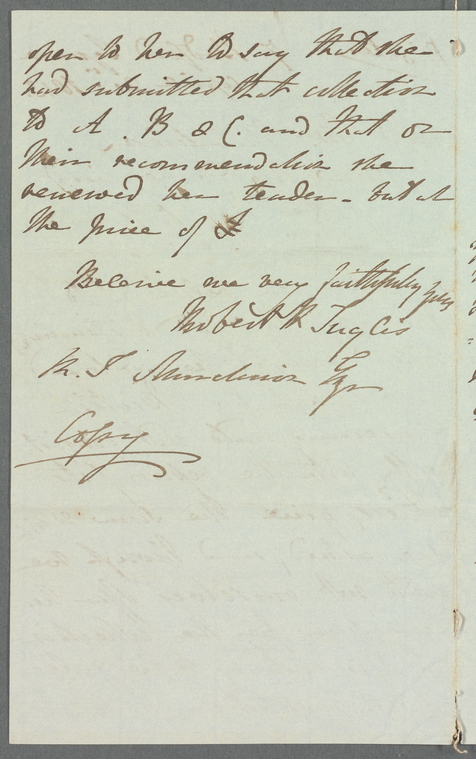 open to her to say that she
had submitted that collection
to A. B & C. and that on
their recommendation she
renewed her tender - but at
the price of £
Believe me very faithfully yrs
Robert H Inglis
R. I Murchison Esqr
Copy